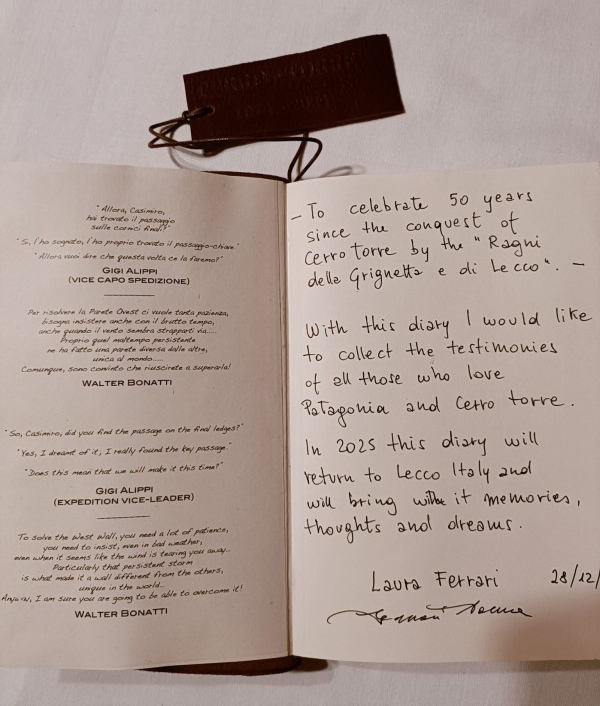 CERRO TORRE
"Allora, Casimiro,
hai trovato il passaggio
sulle cornici finali?"
"Si, l'ho sognato, l'ho proprio trovato il passaggio-chiave."
"Allora vuol dire che questa volta ce la faremo?"
GIGI ALIPPI
(VICE CAPO SPEDIZIONE)
Per risolvere la Parete Ovest ci vuole tanta pazienza,
bisogna insistere anche con il brutto tempo,
anche quando il vento sembra strapparti via.....
Proprio quel maltempo persistente
ne ha fatto una parete diversa dalle altre,
unica al mondo.....
Comunque, sono convinto che riuscirete a superarla!
WALTER BONATTI
"So, Casimiro, did you find the passage on the final ledges?"
"Yes, I dreamt of it; I really found the key passage."
"Does this mean that we will make it this time?"
GIGI ALIPPI
(EXPEDITION VICE-LEADER)
To solve the West Wall, you need a lot of patience,
you need to insist, even in bad weather,
even when it seems like the wind is tearing you away...
Particularly that persistent storm
is what made it a wall different from the others,
unique in the world...
Anyway, I am sure you are going to be able to overcome it!
WALTER BONATTI
- To celebrate 50 years
since the conquest of
Cerro torre by the "Ragni
della Grignetta e di Lecco". -
With this diary I would like
to collect the testimonies
of all those who love
Patagonia and Cerro torre.
In 2025 this diary will
return to Lecco Italy and
will bring with it memories,
thoughts and dreams.
Laura Ferrari 28/12/